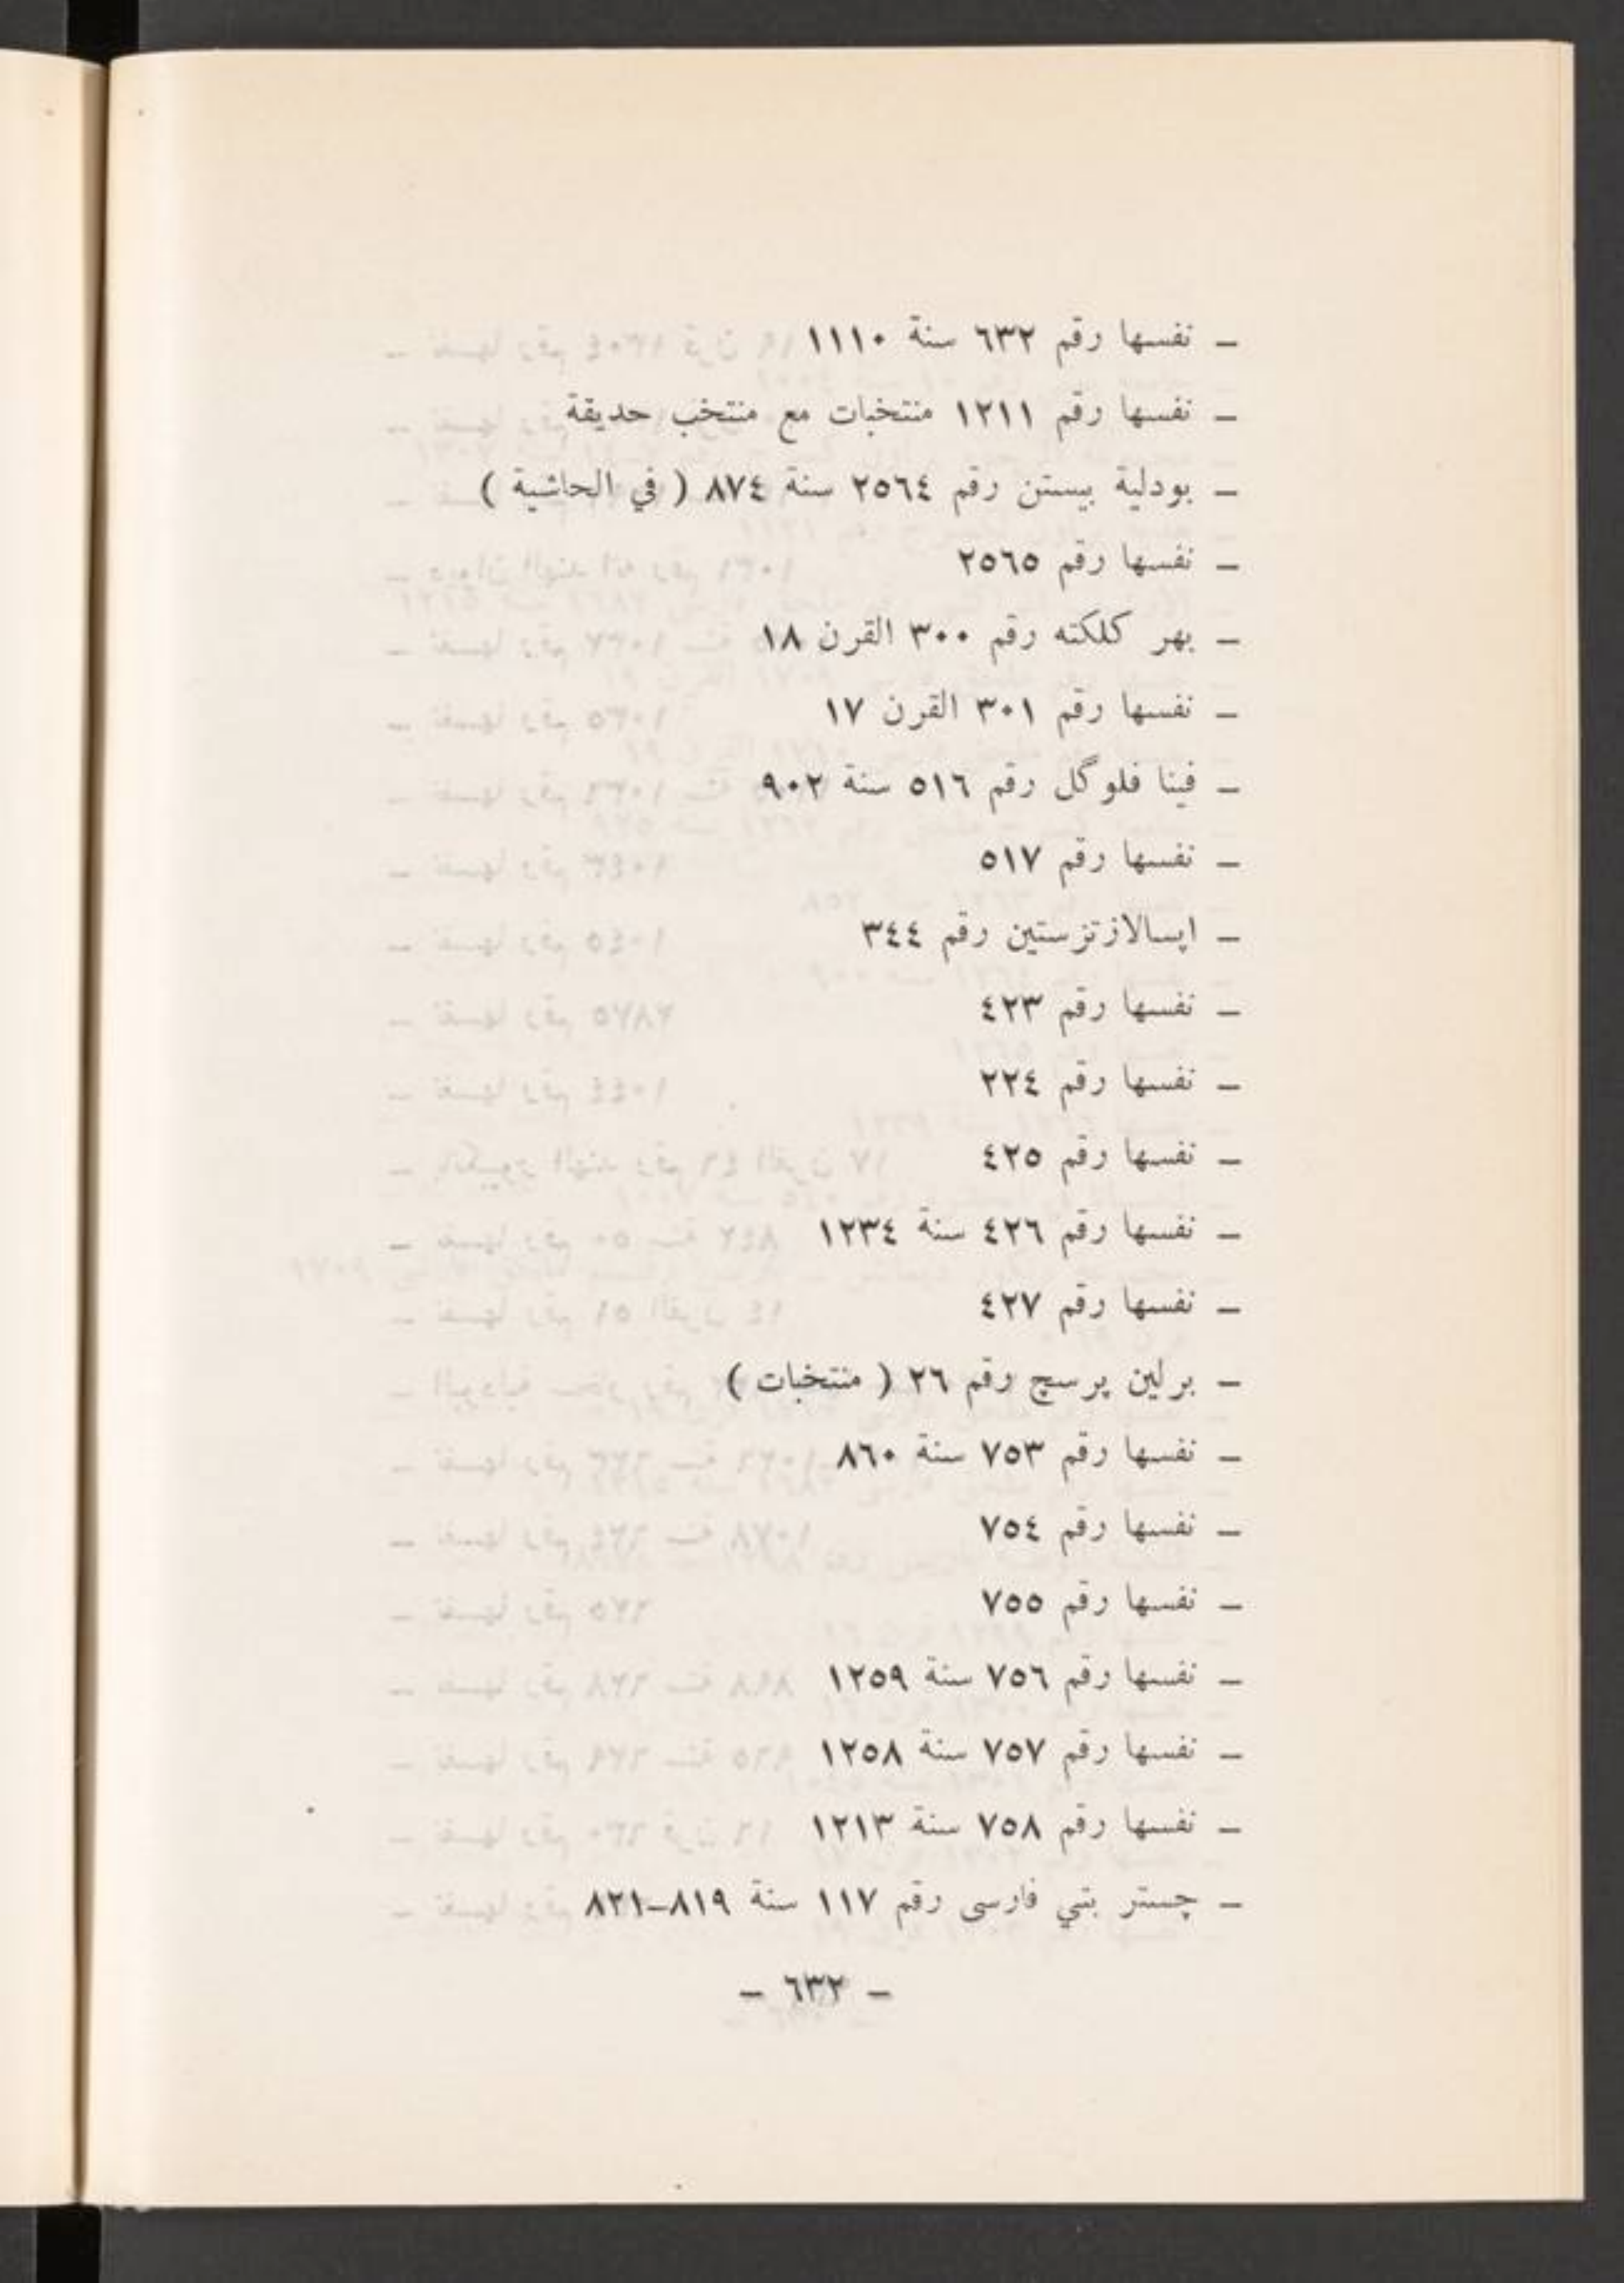 ـ نفسها رقم ٦٣٢ سنة ١١١٠
ـ نفسها رقم ١٢١١ منتخبات مع منتخب حديقة
ـ بودلية بيستن رقم ٢٥٦٤ سنة ٨٧٤ ( في الحاشية )
ـ نفسها رقم ٢٥٦٥
ـ بهر كلكته رقم ٣٠٠ القرن ١٨
ـ نفسها رقم ٣٠١ القرن ١٧
ـ فينا فلوگل رقم ٥١٦ سنة ٩٠٢
ـ نفسها رقم ٥١٧
ـ اپسالازتزستين رقم ٣٤٤
ـ نفسها رقم ٤٢٣
ـ نفسها رقم ٢٢٤
ـ نفسها رقم ٤٢٥
ـ نفسها رقم ٤٢٦ سنة ١٢٣٤
ـ نفسها رقم ٤٢٧
ـ برلين پرسچ رقم ٢٦ ( منتخبات )
ـ نفسها رقم ٧٥٣ سنة ٨٦٠
ـ نفسها رقم ٧٥٤
ـ نفسها رقم ٧٥٥
ـ نفسها رقم ٧٥٦ سنة ١٢٥٩
ـ نفسها رقم ٧٥٧ سنة ١٢٥٨
ـ نفسها رقم ٧٥٨ سنة ١٢١٣
ـ چستر بتي فارسى رقم ١١٧ سنة ٨١٩ـ٨٢١
ـ ٦٣٢ ـ